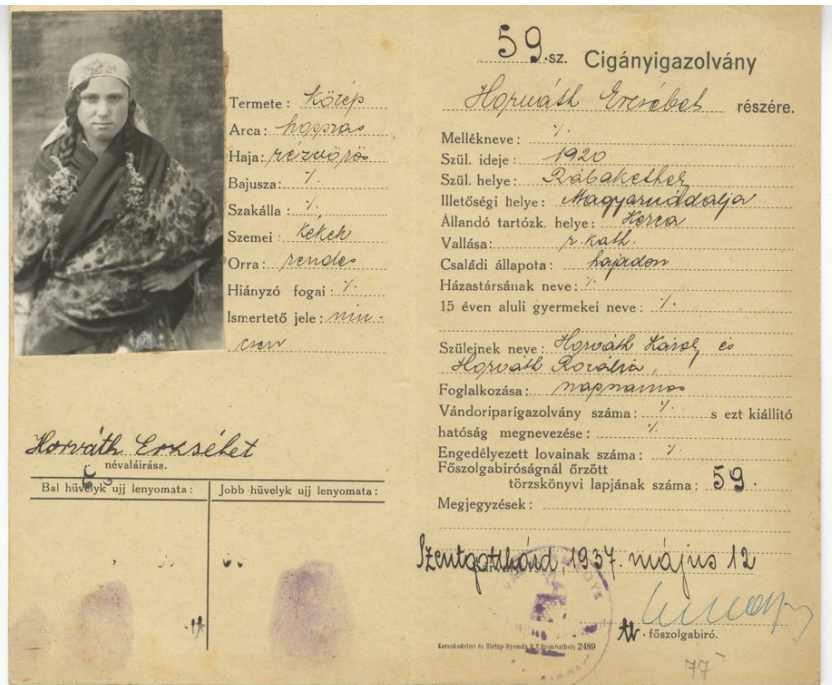 Termete: közép
Arca: hosszas
Haja: rézvörös
Bajusza: ·/.
Szakálla: ·/.
Szemei kékek
Orra: rendes
Hiányzó fogai: ·/.
Ismertető jele: nin-
csen
Horváth Erzsébet
névaláírása.
Bal hüvelyk ujj lenyomata:
Jobb hüvelyk ujj lenyomata:
59.sz. Cigányigazolvány
Horváth Erzsébet részére.
Mellékneve: ·/.
Szül. ideje: 1920
Szül. helye: Rábakethely
Illetőségi helye: Magyarnádalja
Állandó tartózk. helye: Kerca
Vallása: r. kath.
Családi állapota: hajadon
Házastársának neve: ·/.
15 éven aluli gyermekei neve: ·/.
Szüleinek neve: Horváth Károly és
Horváth Rozália,
Foglalkozása: napszamos
Vándoriparigazolvány száma: ·/. s ezt kiállító
hatóság megnevezése: ·/.
Engedélyezett lovainak száma: ·/.
Főszolgabíróságnál őrzött
törzskönyvi lapjának száma: 59.
Megjegyzések:
Szentgotthárd, 1937. május 12
tb. főszolgabiró.
2489
77